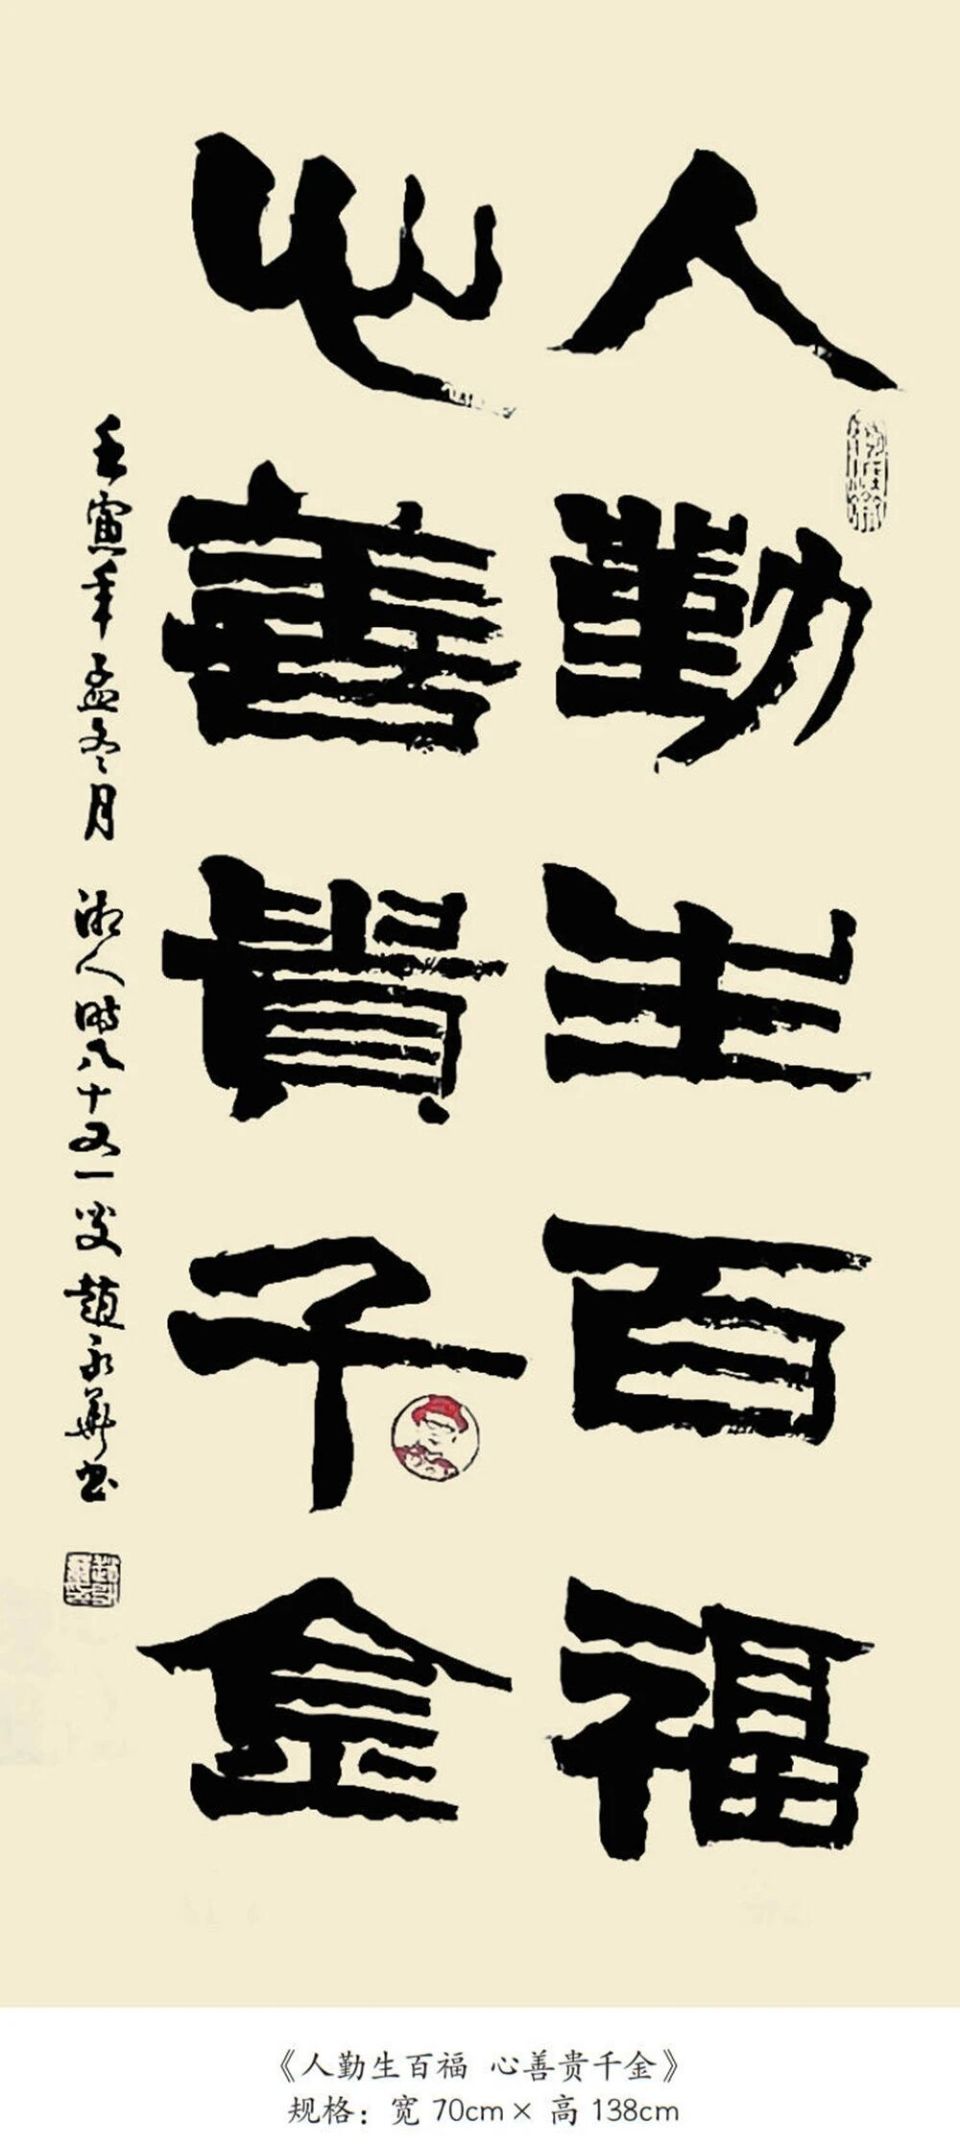 人勤生百福
心善贵千金
壬寅年孟冬月 湘人时八十又一叟 趙永華书
《人勤生百福 心善贵千金》
规格：宽 70cm × 高 138cm